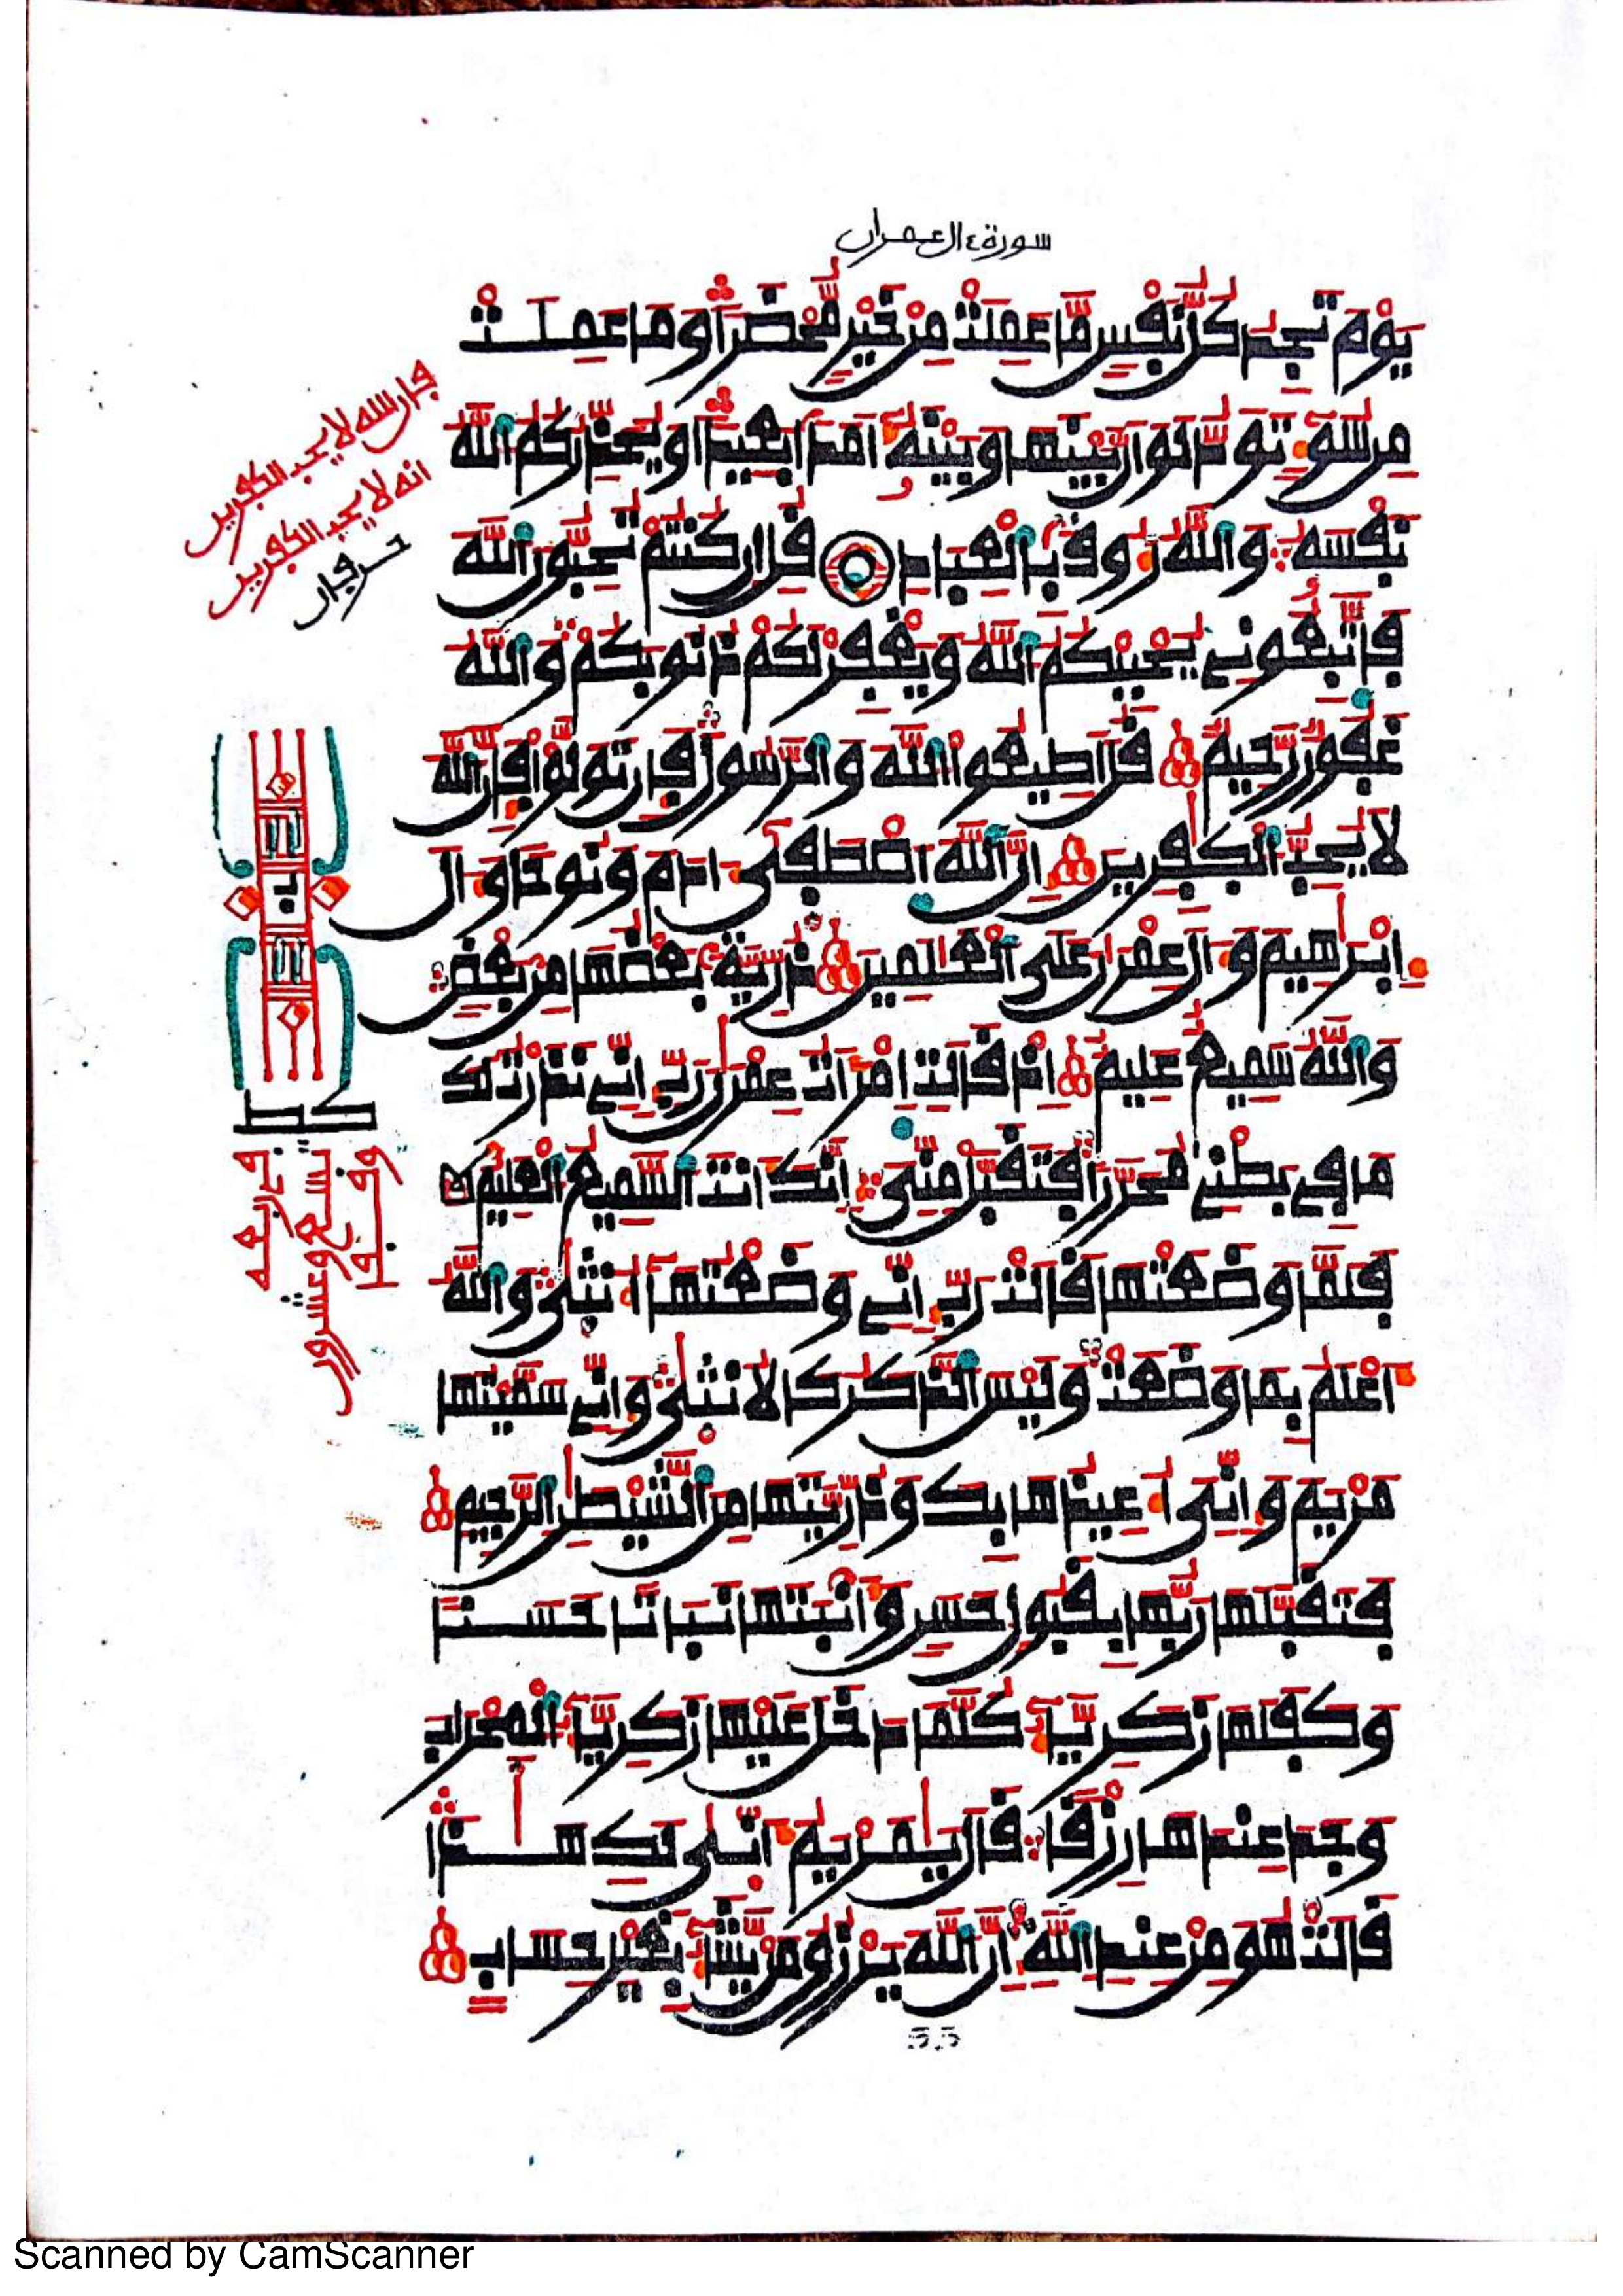 سورة ءال عمران
يَوْمَ تَجِدُ كُلُّ نَفْسٍ مَّا عَمِلَتْ مِنْ خَيْرٍ مُّحْضَرًا وَمَا عَمِلَتْ
مِن سُوٓءٍ تَوَدُّ لَوْ أَنَّ بَيْنَهَا وَبَيْنَهُۥٓ أَمَدًا بَعِيدًا وَيُحَذِّرُكُمُ اللَّهُ
نَفْسَهُۥ وَاللَّهُ رَءُوفٌ بِالْعِبَادِ قُلْ إِن كُنتُمْ تُحِبُّونَ اللَّهَ
فَاتَّبِعُونِي يُحْبِبْكُمُ اللَّهُ وَيَغْفِرْ لَكُمْ ذُنُوبَكُمْ وَاللَّهُ
غَفُورٌ رَّحِيمٌ قُلْ أَطِيعُوا اللَّهَ وَالرَّسُولَ فَإِن تَوَلَّوْا فَإِنَّ اللَّهَ
لَا يُحِبُّ الْكَٰفِرِينَ إِنَّ اللَّهَ اصْطَفَىٰ ءَادَمَ وَنُوحًا وَءَالَ
إِبْرَٰهِيمَ وَءَالَ عِمْرَٰنَ عَلَى الْعَٰلَمِينَ ذُرِّيَّةً بَعْضُهَا مِن بَعْضٍ
وَاللَّهُ سَمِيعٌ عَلِيمٌ إِذْ قَالَتِ امْرَأَتُ عِمْرَٰنَ رَبِّ إِنِّي نَذَرْتُ لَكَ
مَا فِي بَطْنِي مُحَرَّرًا فَتَقَبَّلْ مِنِّيٓ إِنَّكَ أَنتَ السَّمِيعُ الْعَلِيمُ
فَلَمَّا وَضَعَتْهَا قَالَتْ رَبِّ إِنِّي وَضَعْتُهَآ أُنثَىٰ وَاللَّهُ
أَعْلَمُ بِمَا وَضَعَتْ وَلَيْسَ الذَّكَرُ كَالْأُنثَىٰ وَإِنِّي سَمَّيْتُهَا
مَرْيَمَ وَإِنِّيٓ أُعِيذُهَا بِكَ وَذُرِّيَّتَهَا مِنَ الشَّيْطَٰنِ الرَّجِيمِ
فَتَقَبَّلَهَا رَبُّهَا بِقَبُولٍ حَسَنٍ وَأَنبَتَهَا نَبَاتًا حَسَنًا
وَكَفَلَهَا زَكَرِيَّآءُ كُلَّمَا دَخَلَ عَلَيْهَا زَكَرِيَّآءُ الْمِحْرَابَ
وَجَدَ عِندَهَا رِزْقًا قَالَ يَٰمَرْيَمُ أَنَّىٰ لَكِ هَٰذَا
قَالَتْ هُوَ مِنْ عِندِ اللَّهِ إِنَّ اللَّهَ يَرْزُقُ مَن يَشَآءُ بِغَيْرِ حِسَابٍ
55
فإن الله لا يحب الكفرين
انه لا يحب الكفرين
تسع وعشرون
Scanned by CamScanner